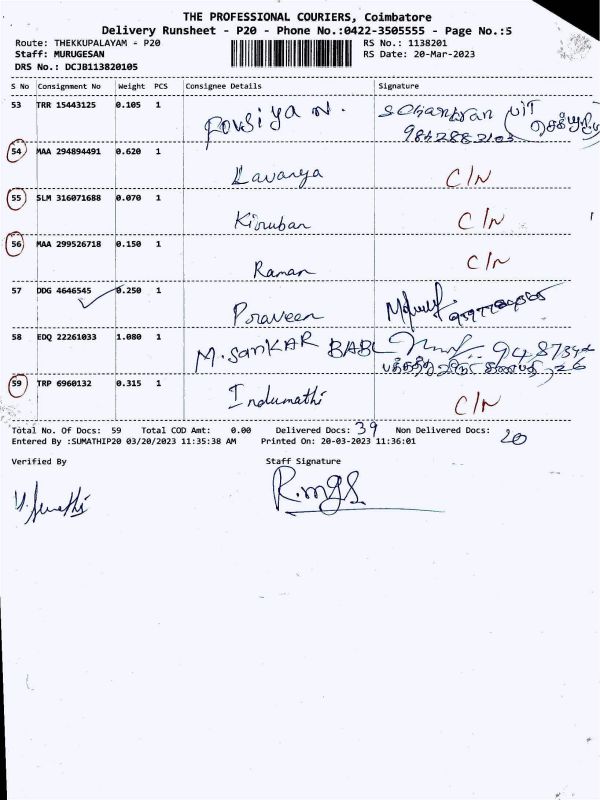 THE PROFESSIONAL COURIERS, Coimbatore
Delivery Runsheet - P20 - Phone No.:0422-3505555 - Page No.:5
Route: THEKKUPALAYAM - P20 RS No.: 1138201
Staff: MURUGESAN RS Date: 20-Mar-2023
DRS No.: DCJB113820105
S No Consignment No Weight PCS Consignee Details Signature
53 TRR 15443125 0.105 1 S. Chandran
54 MAA 294894491 0.620 1
Lavanya C/N
55 SLM 316071688 0.070 1
Kiruban C/N
56 MAA 299526718 0.150 1
Raman C/N
57 DDG 4646545 0.250 1
Praveen
58 EDQ 22261033 1.080 1
M. SANKAR BABU
59 TRP 6960132 0.315 1
Indumathi C/N
Total No. Of Docs: 59 Total COD Amt: 0.00 Delivered Docs: 39 Non Delivered Docs: 20
Entered By :SUMATHIP20 03/20/2023 11:35:38 AM Printed On: 20-03-2023 11:36:01
Verified By Staff Signature